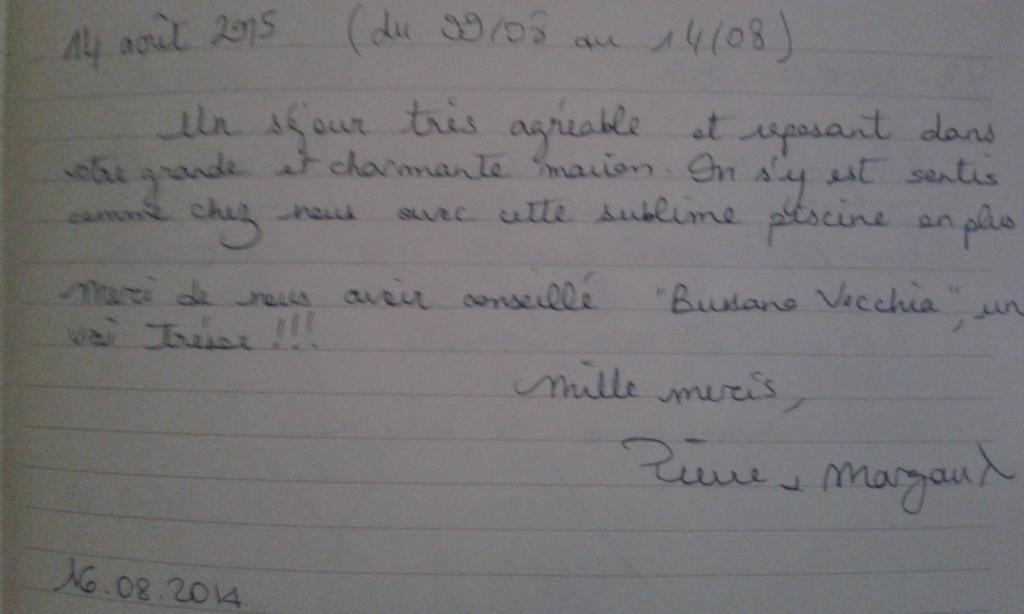 14 août 2015 (du 09/08 au 14/08)
Un séjour très agréable et reposant dans
votre grande et charmante maison. On s'y est sentis
comme chez nous avec cette sublime piscine en plus
Merci de nous avoir conseillé "Bussana Vecchia", un
vrai Trésor !!!
Mille mercis,
Pierre & Margaux
16.08.2014